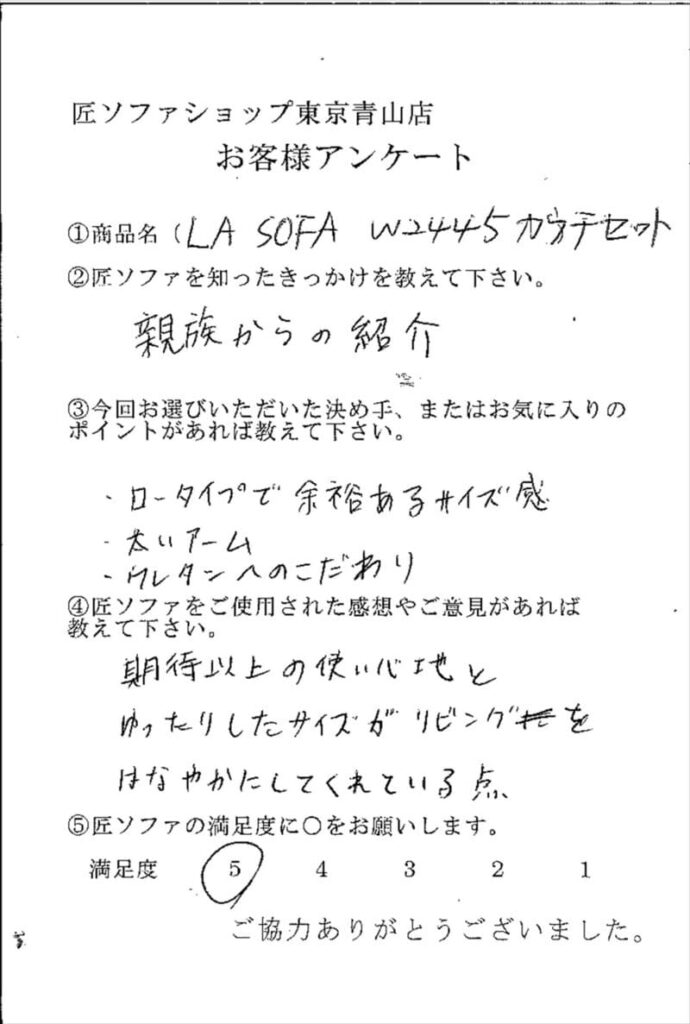 匠ソファショップ東京青山店
お客様アンケート
①商品名（LA SOFA W2445 カウチセット
②匠ソファを知ったきっかけを教えて下さい。
親族からの紹介
③今回お選びいただいた決め手、またはお気に入りの
ポイントがあれば教えて下さい。
・ロータイプで余裕あるサイズ感
・太いアーム
・ウレタンへのこだわり
④匠ソファをご使用された感想やご意見があれば
教えて下さい。
期待以上の使い心地と
ゆったりしたサイズがリビングを
はなやかにしてくれている点、
⑤匠ソファの満足度に○をお願いします。
満足度 5 4 3 2 1
ご協力ありがとうございました。